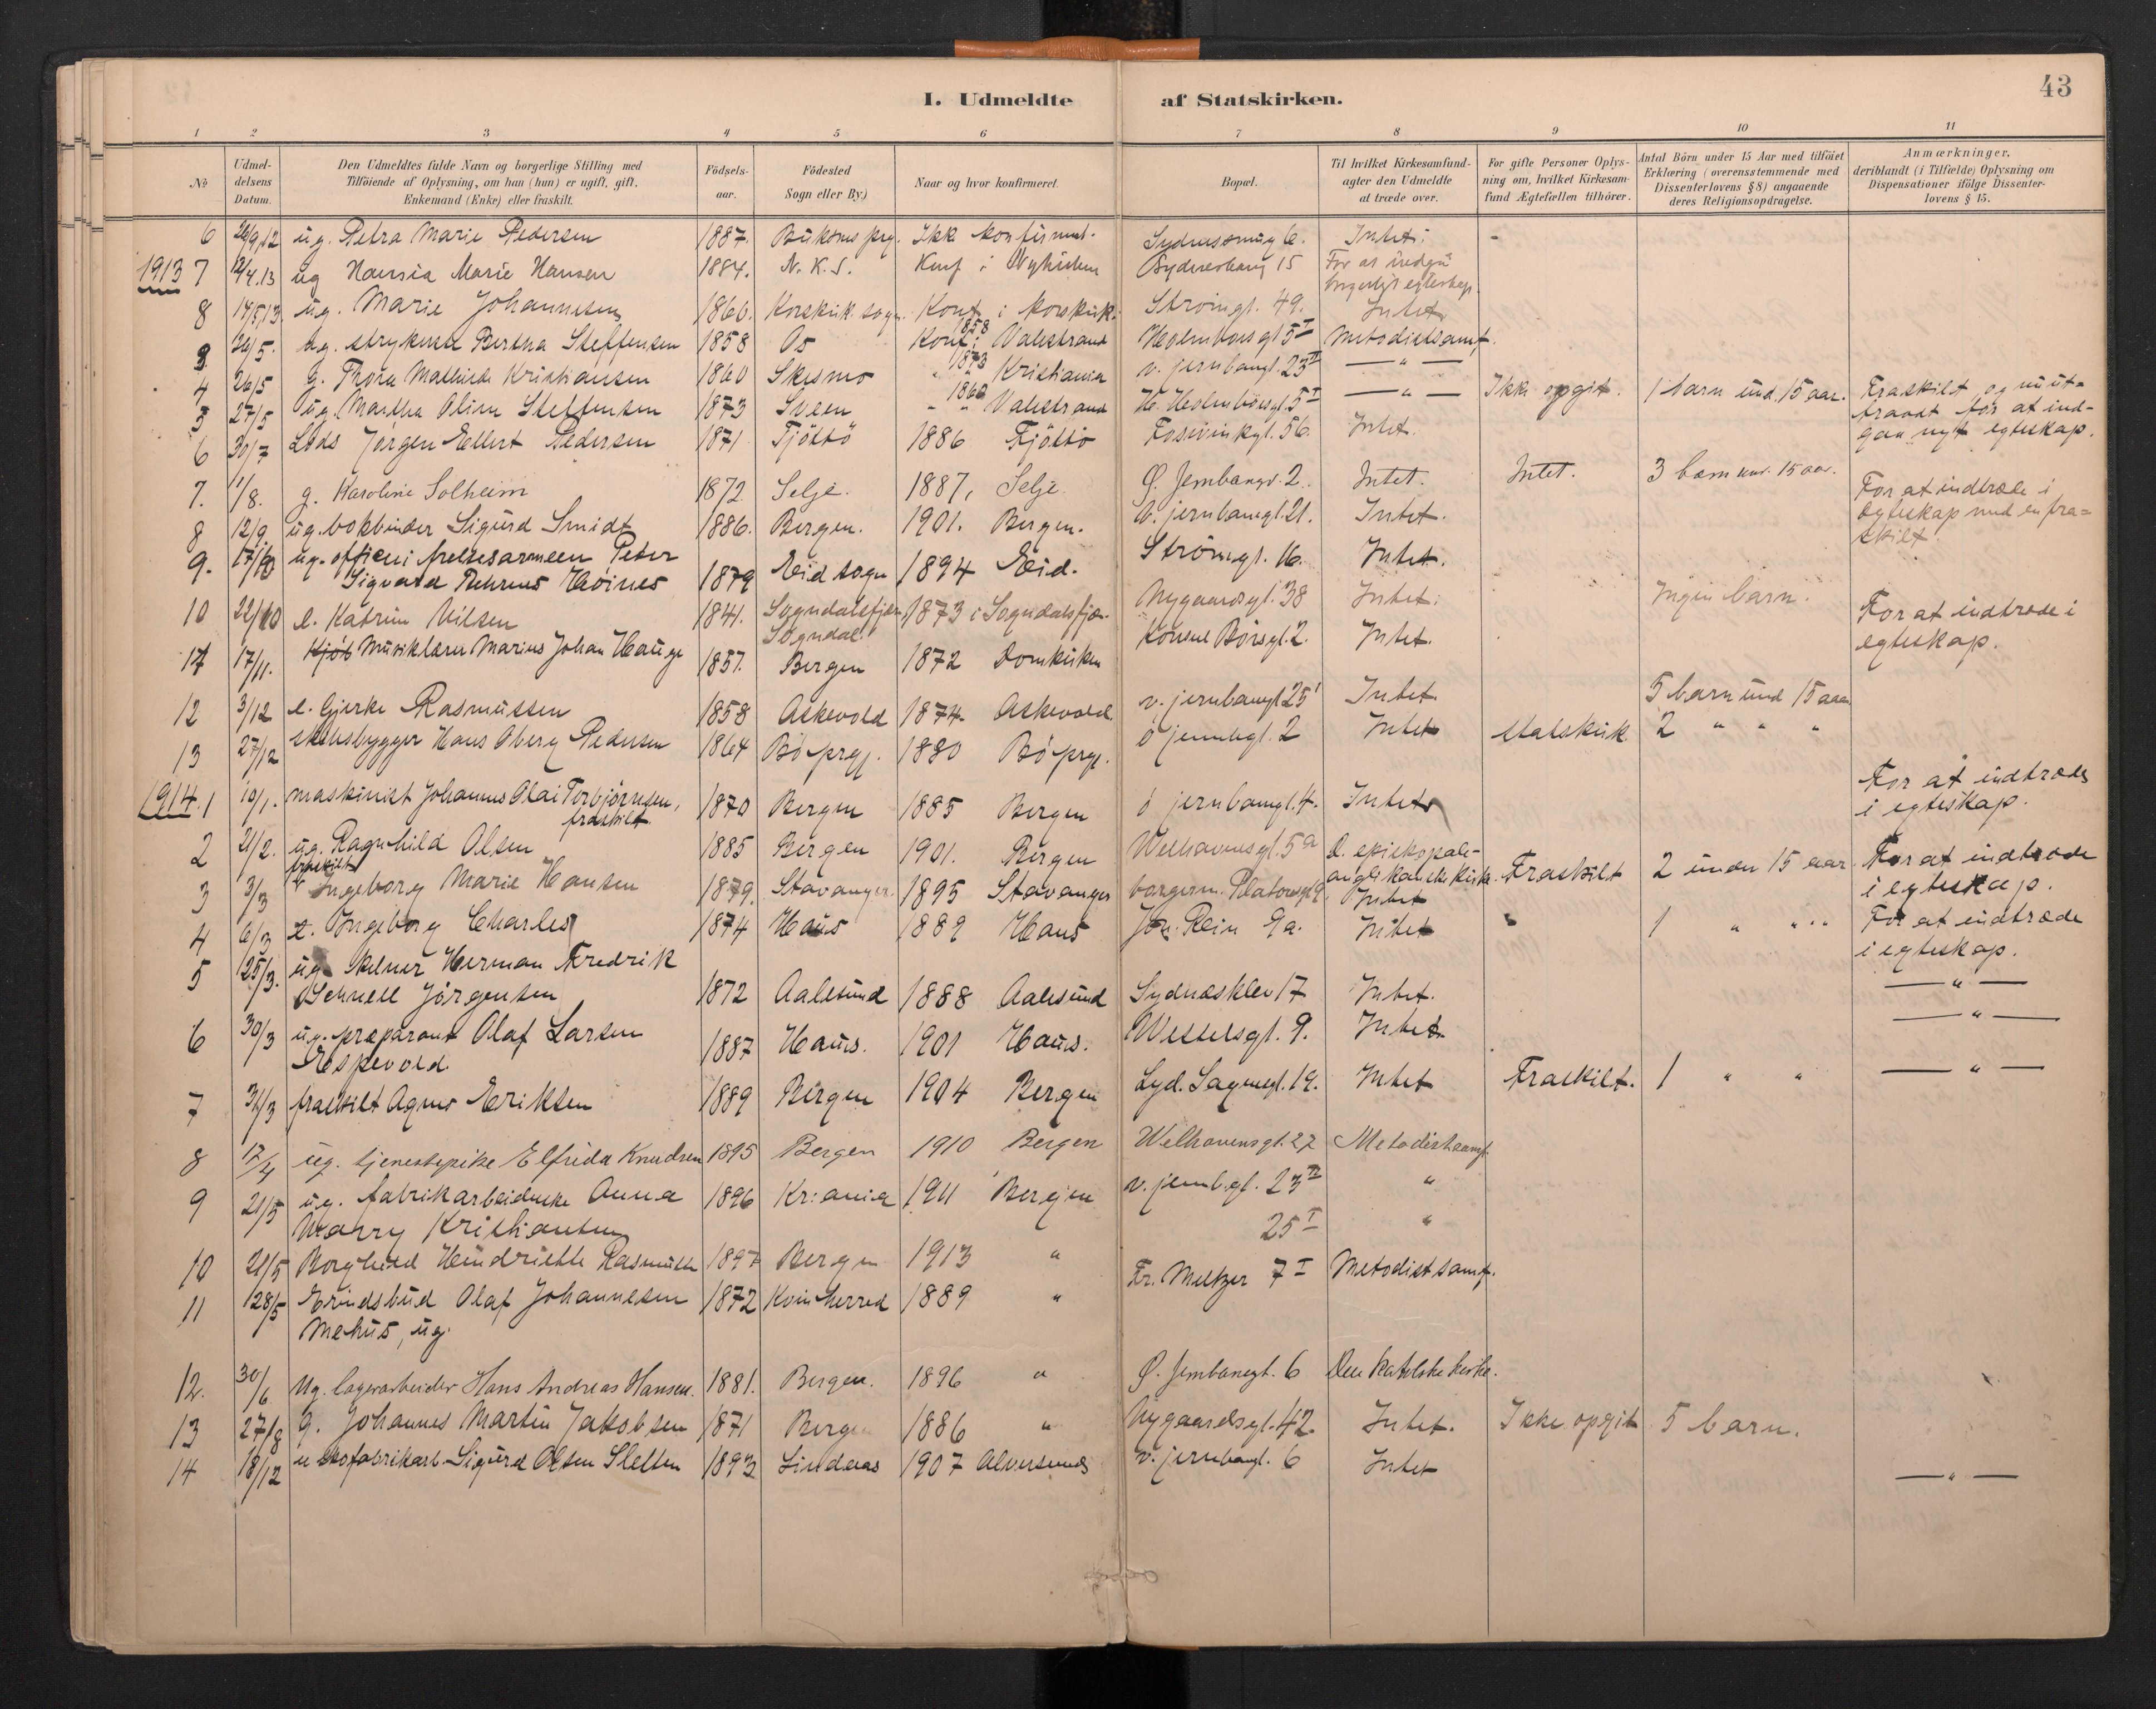 43
I. Udmeldte af Statskirken.
1 2 3 4 5 6 7 8 9 10 11
No
Udmel-
delsens
Datum.
Den Udmeldtes fulde Navn og borgerlige Stilling med
Tilföiende af Oplysning, om han (hun) er ugift, gift,
Enkemand (Enke) eller fraskilt.
Födsels-
aar.
Födested
Sogn eller By.)
Naar og hvor konfirmeret.
Bopæl.
Til hvilket Kirkesamfund-
agter den Udmeldte
at træde over.
For gifte Personer Oplys-
ning om, hvilket Kirkesam-
fund Ægtefællen tilhörer.
Antal Börn under 15 Aar med tilföiet
Erklæring (overensstemmende med
Dissenterlovens §8) angaaende
deres Religionsopdragelse.
Anmærkninger,
deriblandt (i Tilfælde) Oplysning om
Dispensationer ifölge Dissenter-
lovens § 15.
6 26/9.12 ug. Petra Marie Pedersen 1887. Ikke konfirmert. 6. Intet. -
1913 7 12/4.13 ug Marie Hansen 1884. N. K. S. Konf i Nykirken 15 For at indgaa
borgerligt egteskap.
8 14/5.13. ug. Marie Johannesen 1860. Korskirk. sogn. Konf. i korskirk. Strömgt. 49. Intet
3 26/5. ug. strykerske Bertha Steffensen 1858 Os Konf. i 1858 Valestrand Holmboesgt 5 I Metodistsamf.
4 26/5 g. Thora Mathilde Kristiansen 1860 Skesmo " 1873 Kristiania v. jernbanegt. 23 II — " —
5 27/5 ug. Martha Oline Steffensen 1873 Sveen " 1860 Valestrand H. Holmboesgt. 5 I — " — Ikke opgit. 1 barn und. 15 aar. Fraskilt og
for at ind-
gaa nyt egteskap.
6 30/7 Lods Jörgen Ellert Pedersen 1871 Tjöttö 1886 Tjöttö Fosvinkelgt. 56. Intet.
7. 1/8. g. Karoline Solheim 1872 Selje. 1887, Selje. Ø. Jernbangt. 2. Intet. Intet. 3 barn und. 15 aar.
8 12/9. ug. bokbinder Sigurd Smidt 1886. Bergen. 1901. Bergen. v. jernbanegt. 21. Intet. For at indtræde i
egteskap med en fra-
skilt
9. 17/10 ug. officer i frelsesarmeen Peter
Sigvald Höines 1879 Eid sogn 1894 Eid. Strömgt. 16. Intet.
10 22/10 e. Katrine Nilsen 1841. Sogndalsfjæren
Sogndal. 1873 i Sogndalsfjær. Nygaardsgt. 38 Intet. Ingen barn.
17 17/11. Kjöb Musiklærer Marius Johan Hauge 1857. Bergen 1872 Domkirken Konsul Börsgt. 2. Intet. For at indtræde i
egteskap.
12 3/12 e. Gjerke Rasmussen 1858 Askevold 1874 Askevold. v. jernbanegt 25 I Intet. 5 barn und 15 aar
13 27/12 skibsbygger Hans Öberg Pedersen 1864 Bö prgj. 1880 Bö prgj. ö jernbgt. 2 Intet statskirk. 2 " " "
1914. 1 10/1. maskinist Johannes Olai Torbjörnsen,
fraskilt 1870 Bergen 1885 Bergen ö jernbanegt. 4. Intet For at indtræde
i egteskap.
2 21/2. ug. Ragnhild Olsen 1885 Bergen 1901. Bergen Welhavensgt. 5a D. episkopale-
anglikanske kirke.
3 3/3 fraskilt Ingeborg Marie Hansen 1879. Stavanger. 1895 Stavanger borgerm. Platousgt 9. Intet Fraskilt 2 under 15 aar For at indtræde
i egteskap.
4 6/3 e. Ingeborg Charles 1874 Haus 1889 Haus Joh. Rein 9a. Intet " 1 " " For at indtræde
i egteskap.
5 25/3. ug. Kelner Herman Fredrik
Schnell Jörgensen 1872 Aalesund 1888 Aalesund Sydnæsklev 17 Intet. — " —
6 30/3 ug. præparant Olaf Larsen
Espevold. 1887 Haus. 1901 Haus. Wesselsgt. 9. Intet. — " —
7 31/3 fraskilt Agnes Eriksen 1889 Bergen 1904 Bergen Lyd. Sagensgt. 19. Intet Fraskilt. 1 " " — " —
8 17/4 ug. tjenestepike Elfrida Knudsen 1895 Bergen 1910 Bergen Welhavensgt. 27 Metodistsamf.
9 21/5 ug. fabrikarbeiderske Anna
Marry Kristiansen 1896 Kr:ania 1911 Bergen v. jernb.gt. 23 II "
10 21/5 Borghild Hendriette Rasmussen 1897 Bergen 1913 " 25 I "
11 28/5 Erindsbud Olaf Johannesen
Mehus, ug. 1872 Kvinherred 1889 " Fr. Meltzer 7 I Metodistsamf.
12. 30/6 Ug. lagerarbeider Hans Andreas Hansen. 1881. Bergen. 1896 " Ø. Jernbanegt. 6 Den katolske kirke.
13 27/8 g. Johannes Martin Jakobsen 1871 Bergen 1886 " Nygaardsgt. 42. Intet. Ikke opgit 5 barn.
14 18/12 u skofabrikarb Sigurd Olsen Sletten 1893 Lindaas 1907 Alversund v. jernbangt. 6 Intet — " —